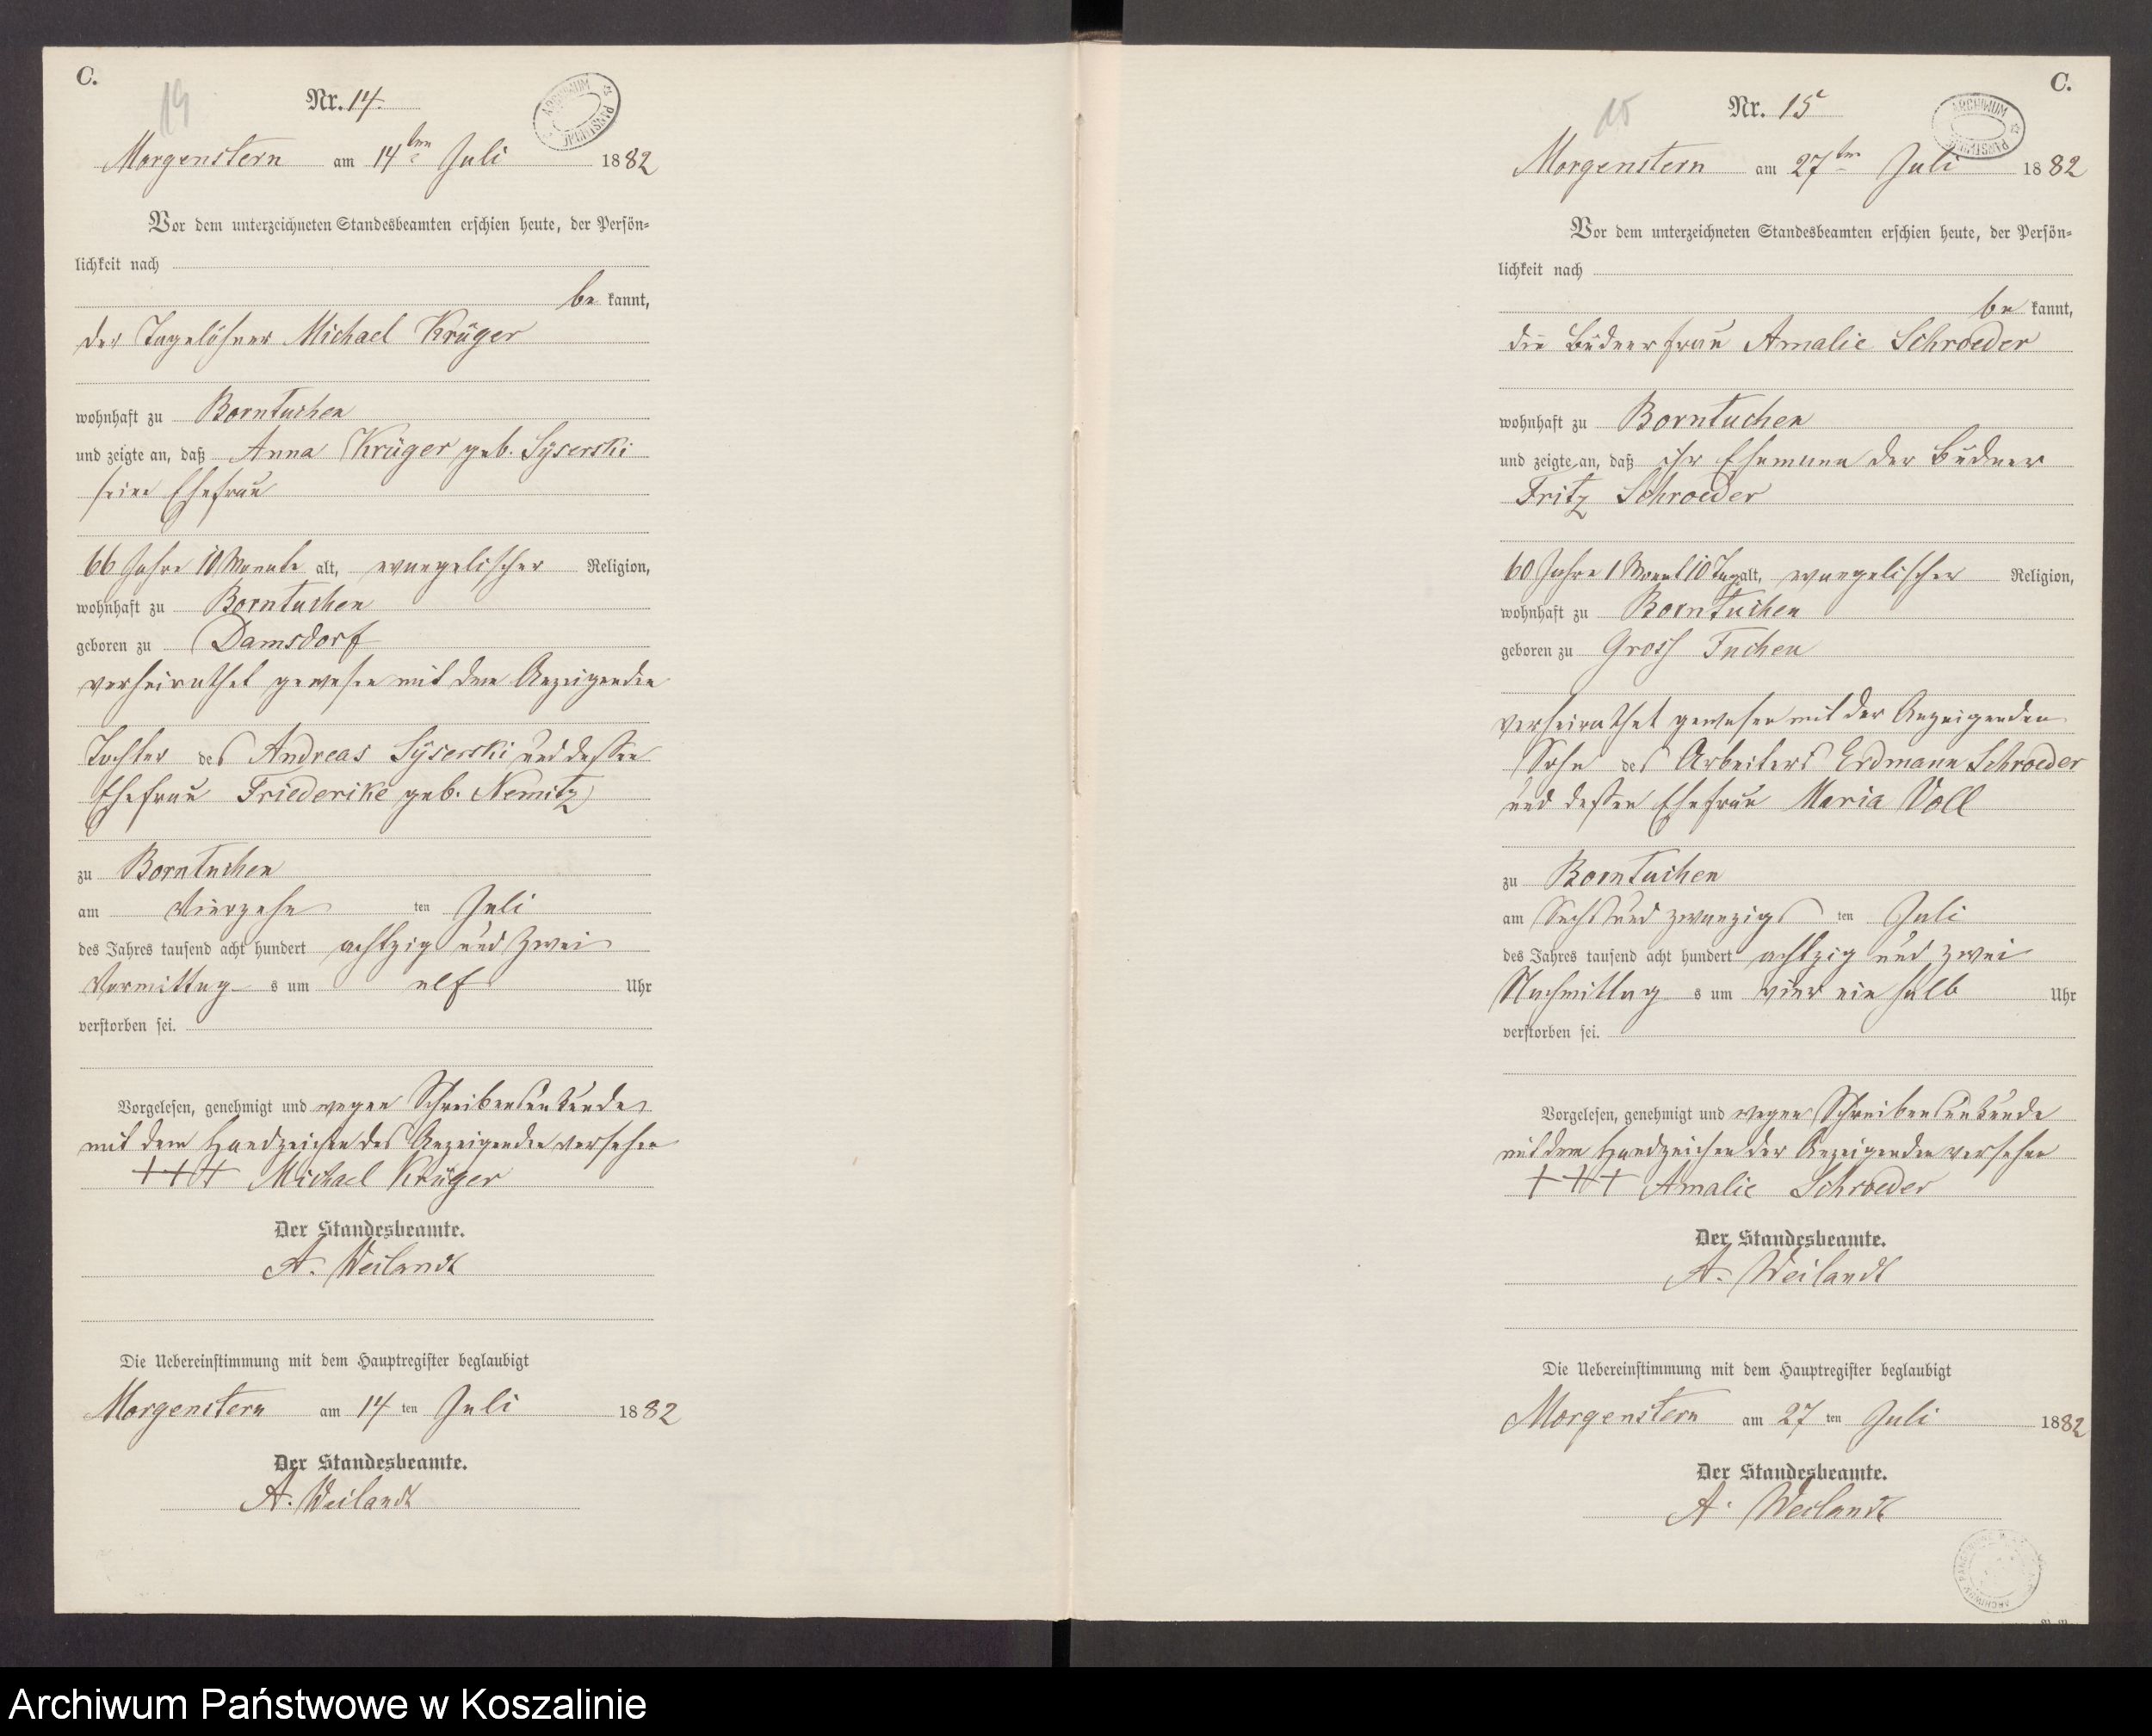 C.
19
Nr. 14.
ARCHIWUM PAŃSTWOWE
Morgenstern am 14ten Juli 1882
Vor dem unterzeichneten Standesbeamten erschien heute, der Persön=
lichkeit nach
be kannt,
der Tagelöhner Michael Krüger
wohnhaft zu Borntuchen
und zeigte an, daß Anna Krüger geb. Syserski
seine Ehefrau
66 Jahre 10 Monate alt, evangelischer Religion,
wohnhaft zu Borntuchen
geboren zu Damsdorf
verheirathet gewesen mit dem Anzeigenden
Tochter des Andreas Syserski und dessen
Ehefrau Friederike geb. Nemitz
zu Borntuchen
am vierzehn ten Juli
des Jahres tausend acht hundert achtzig und zwei
Vormittag s um elf Uhr
verstorben sei.
Vorgelesen, genehmigt und wegen Schreibensunkunde
mit dem Handzeichen des Anzeigenden versehen
+++ Michael Krüger
Der Standesbeamte.
A. Weilandt
Die Uebereinstimmung mit dem Hauptregister beglaubigt
Morgenstern am 14 ten Juli 1882
Der Standesbeamte.
A. Weilandt
C.
15
Nr. 15
ARCHIWUM PAŃSTWOWE
Morgenstern am 27ten Juli 1882
Vor dem unterzeichneten Standesbeamten erschien heute, der Persön=
lichkeit nach
be kannt,
die Büdnerfrau Amalie Schroeder
wohnhaft zu Borntuchen
und zeigte an, daß ihr Ehemann der Büdner
Fritz Schroeder
60 Jahre 1 Monat 10 Tag alt, evangelischer Religion,
wohnhaft zu Borntuchen
geboren zu Gross Tuchen
verheirathet gewesen mit der Anzeigenden
Sohn des Arbeiters Erdmann Schroeder
und dessen Ehefrau Maria Voll
zu Borntuchen
am Sechsundzwanzigs ten Juli
des Jahres tausend acht hundert achtzig und zwei
Nachmittag s um vier ein halb Uhr
verstorben sei.
Vorgelesen, genehmigt und wegen Schreibensunkunde
mit dem Handzeichen der Anzeigenden versehen
+++ Amalie Schroeder
Der Standesbeamte.
A. Weilandt
Die Uebereinstimmung mit dem Hauptregister beglaubigt
Morgenstern am 27 ten Juli 1882
Der Standesbeamte.
A. Weilandt
Archiwum Państwowe w Koszalinie